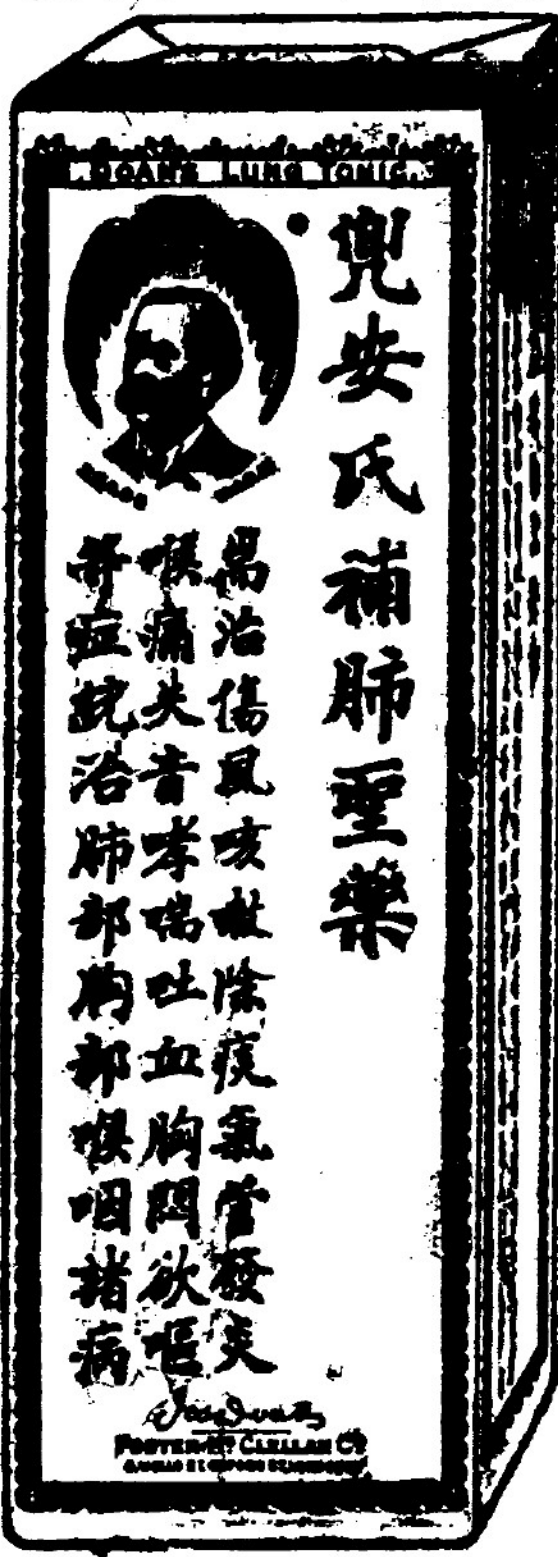 DOAN'S LUNG TONIC.
兜安氏補肺聖藥
專治傷風咳嗽除痰氣管發炎
喉痛失音哮喘吐血胸悶欲嘔
等症統治肺部胸部喉咽諸病
FOSTER-MCCLELLAN CO